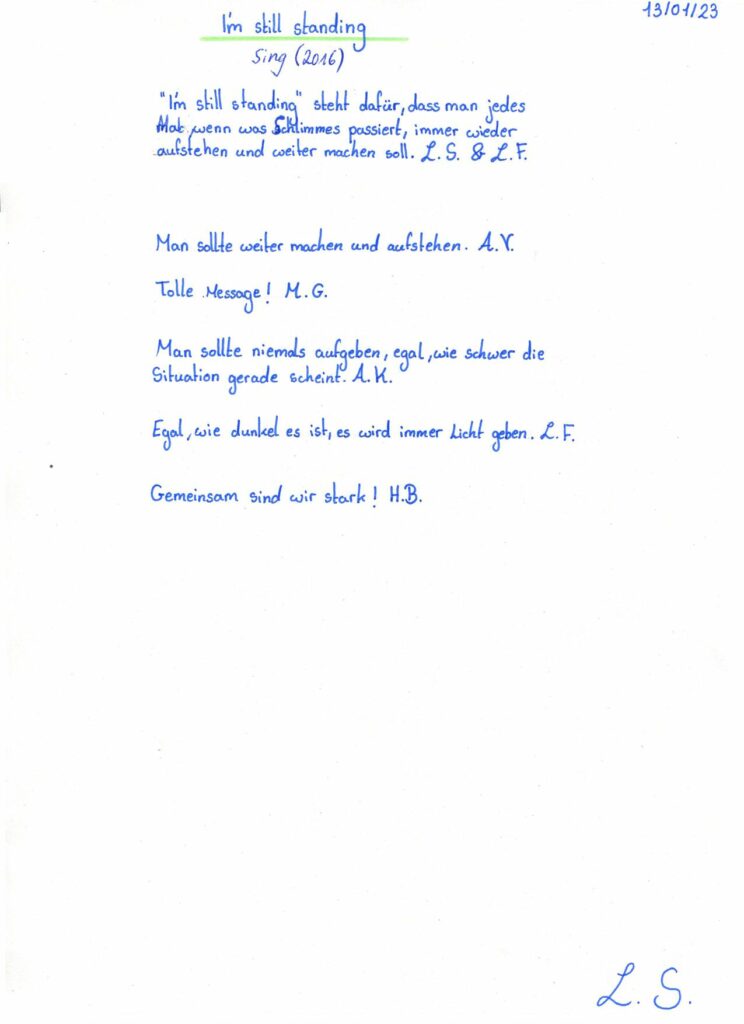 13/01/23
I'm still standing
Sing (2016)
"I'm still standing" steht dafür, dass man jedes
Mal, wenn was Schlimmes passiert, immer wieder
aufstehen und weiter machen soll. L. S. & L. F.
Man sollte weiter machen und aufstehen. A.V.
Tolle Message! M.G.
Man sollte niemals aufgeben, egal, wie schwer die
Situation gerade scheint. A.K.
Egal, wie dunkel es ist, es wird immer Licht geben. L.F.
Gemeinsam sind wir stark! H.B.
L. S.